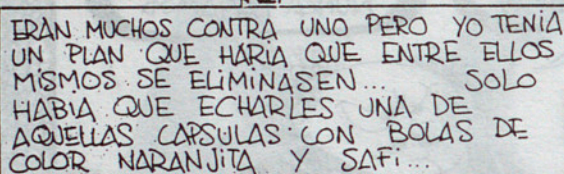 ERAN MUCHOS CONTRA UNO PERO YO TENIA
UN PLAN QUE HARIA QUE ENTRE ELLOS
MISMOS SE ELIMINASEN... SOLO
HABIA QUE ECHARLES UNA DE
AQUELLAS CAPSULAS CON BOLAS DE
COLOR NARANJITA Y SAFI...